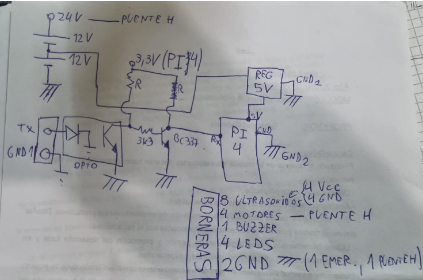 24V — PUENTE H
12V
12V
3,3V (PI 4)
REG
5V
GND1
R
R
TX
GND1
OPTO
3K3
BC337
RX
PI
4
5V
GND
GND2
BORNERAS
8 ULTRASONIDOS 4 VCC
4 GND
4 MOTORES — PUENTE H
1 BUZZER
4 LEDS
2 GND (1 EMER., 1 PUENTEH)